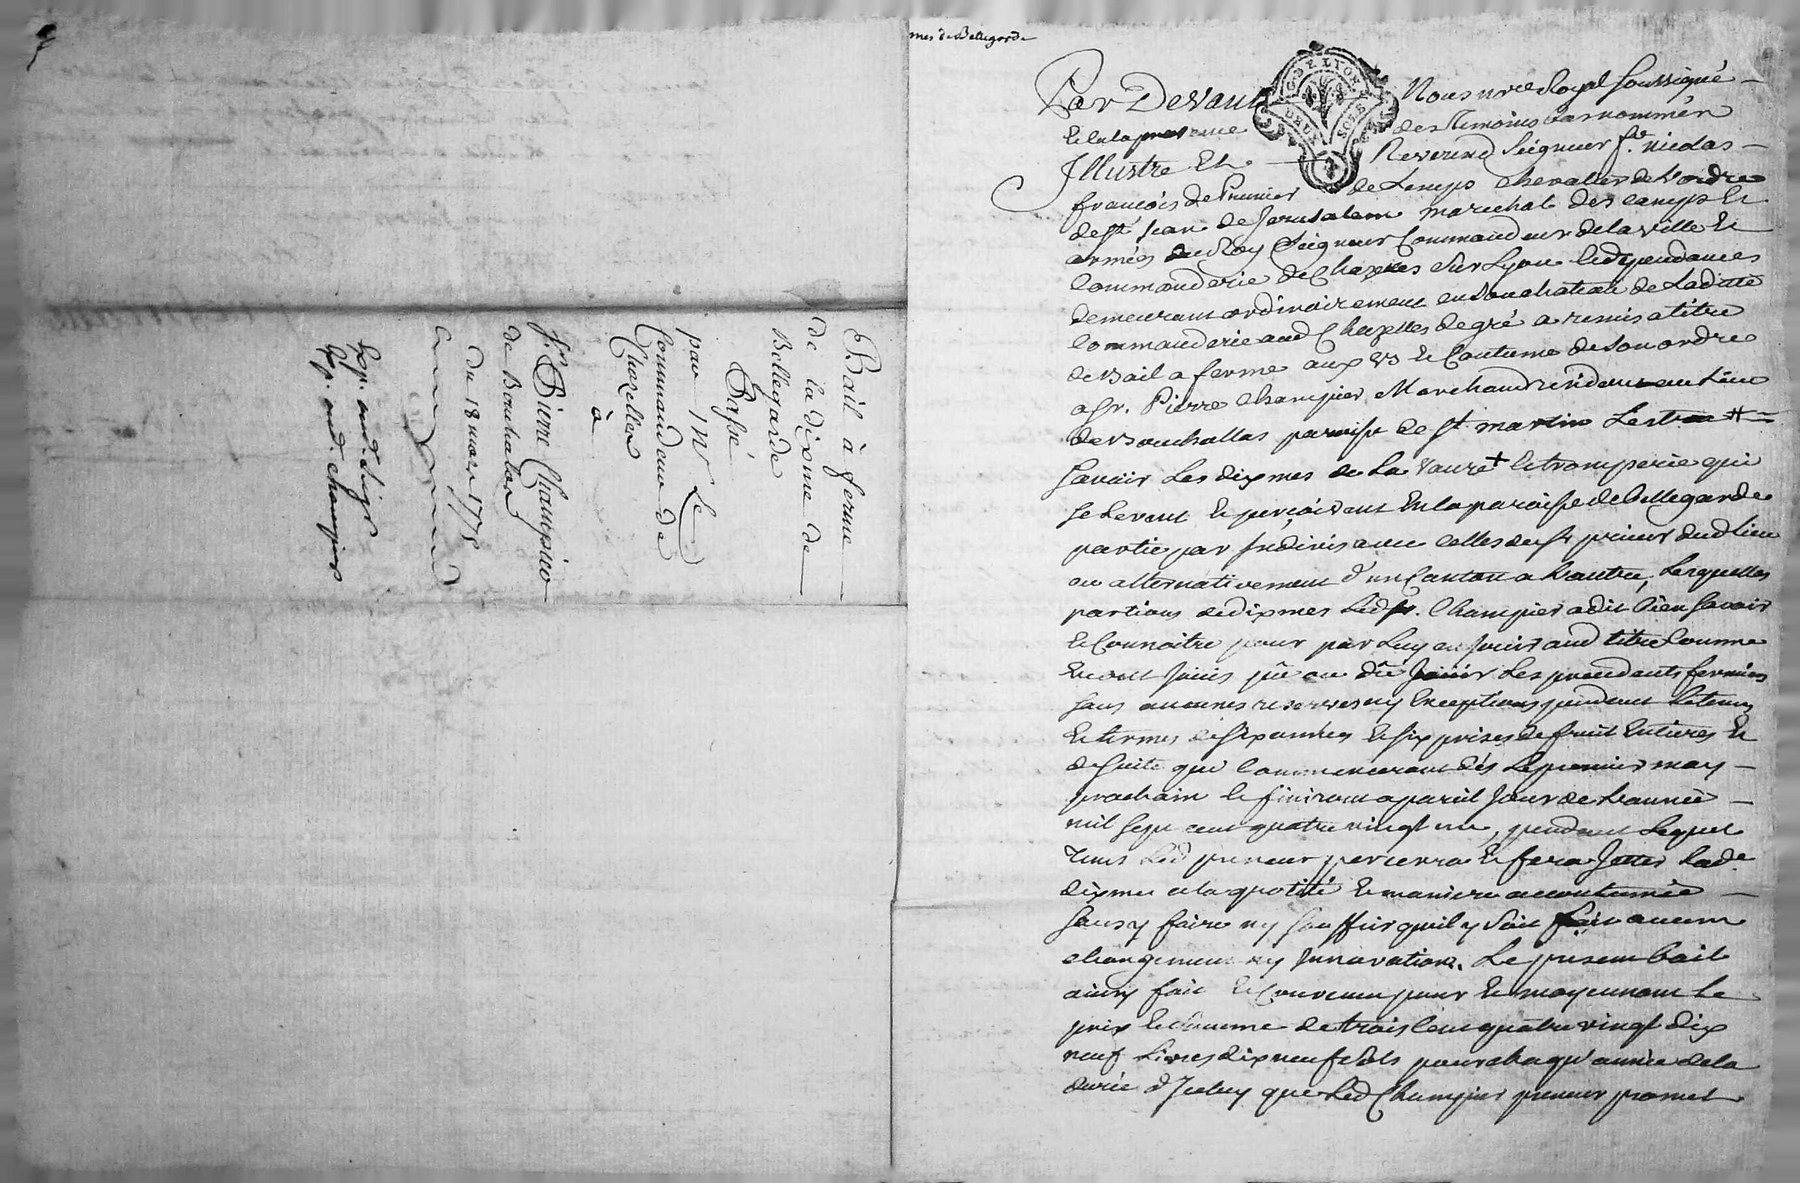 Bail à ferme
de la dixme de
Bellegarde
Passé
par Mr Le
Commandeur de
Chazelles
à
Sr. Pierre Champier
de Bouchalas
du 18 mars 1775
Exp. aud. Sigr
Exp. aud. champier
mes de Bellegarde
G. DE LYON
DEUX SOLS
Par Devant Nous nre Royal soussigné
Et en la presence des temoins bas nommés
Illustre Et Reverend Seigneur fr. nicolas
francois de Prunier de Lemps chevalier de L'ordre
de st jean de Jerusalem marechal des camps Et
armées du Roy Seigneur Commandeur de la ville Et
Commanderie de Chazelles sur Lyon Et dependances
demeurant ordinairement en son chateau de Laditte
Commanderie aud Chazelles de gré a remis a titre
de Bail a ferme aux us Et Coutume de son ordre
a Sr. Pierre Champier Marchand residant au Lieu
de Bouchallas paroisse de st martin Lestra #
savoir Les dixmes de La Vaure + Et tromperie qui
se Levent Et perçoivent En la paroisse de bellegarde
partie par Indivis avec Celles du sr prieur dud Lieu
ou alternativement d'un Canton a L'autre, Lesquelles
portions de dixmes Led sr. Champier a dit Bien savoir
Et Connoitre pour par Luy en jouir aud titre Comme
En ont jouis pû ou dû jouir Les precedents fermiers
sans aucunes reserves ny Exceptions pendant Le tems
Et termes de six années Et six prises de fruit Entieres Et
de suite qui Commenceront dès Le premier may
prochain Et finiront a pareil jour de L'année
mil sept cent quatre vingt un, pendant Lequel
tems Led preneur percevra Et fera Lever Lade
dixme a la quotité Et maniere accoutumée
sans y faire ny souffrir qu'il y soit fait aucun
changement ny Innovation. Le present bail
ainsy fait Et Convenu pour Et moyennant Le
prix Et somme de trois Cent quatre vingt dix
neuf Livres dix neuf sols pour chaqu'année de la
durée d'Iceluy que Led Champier preneur promet